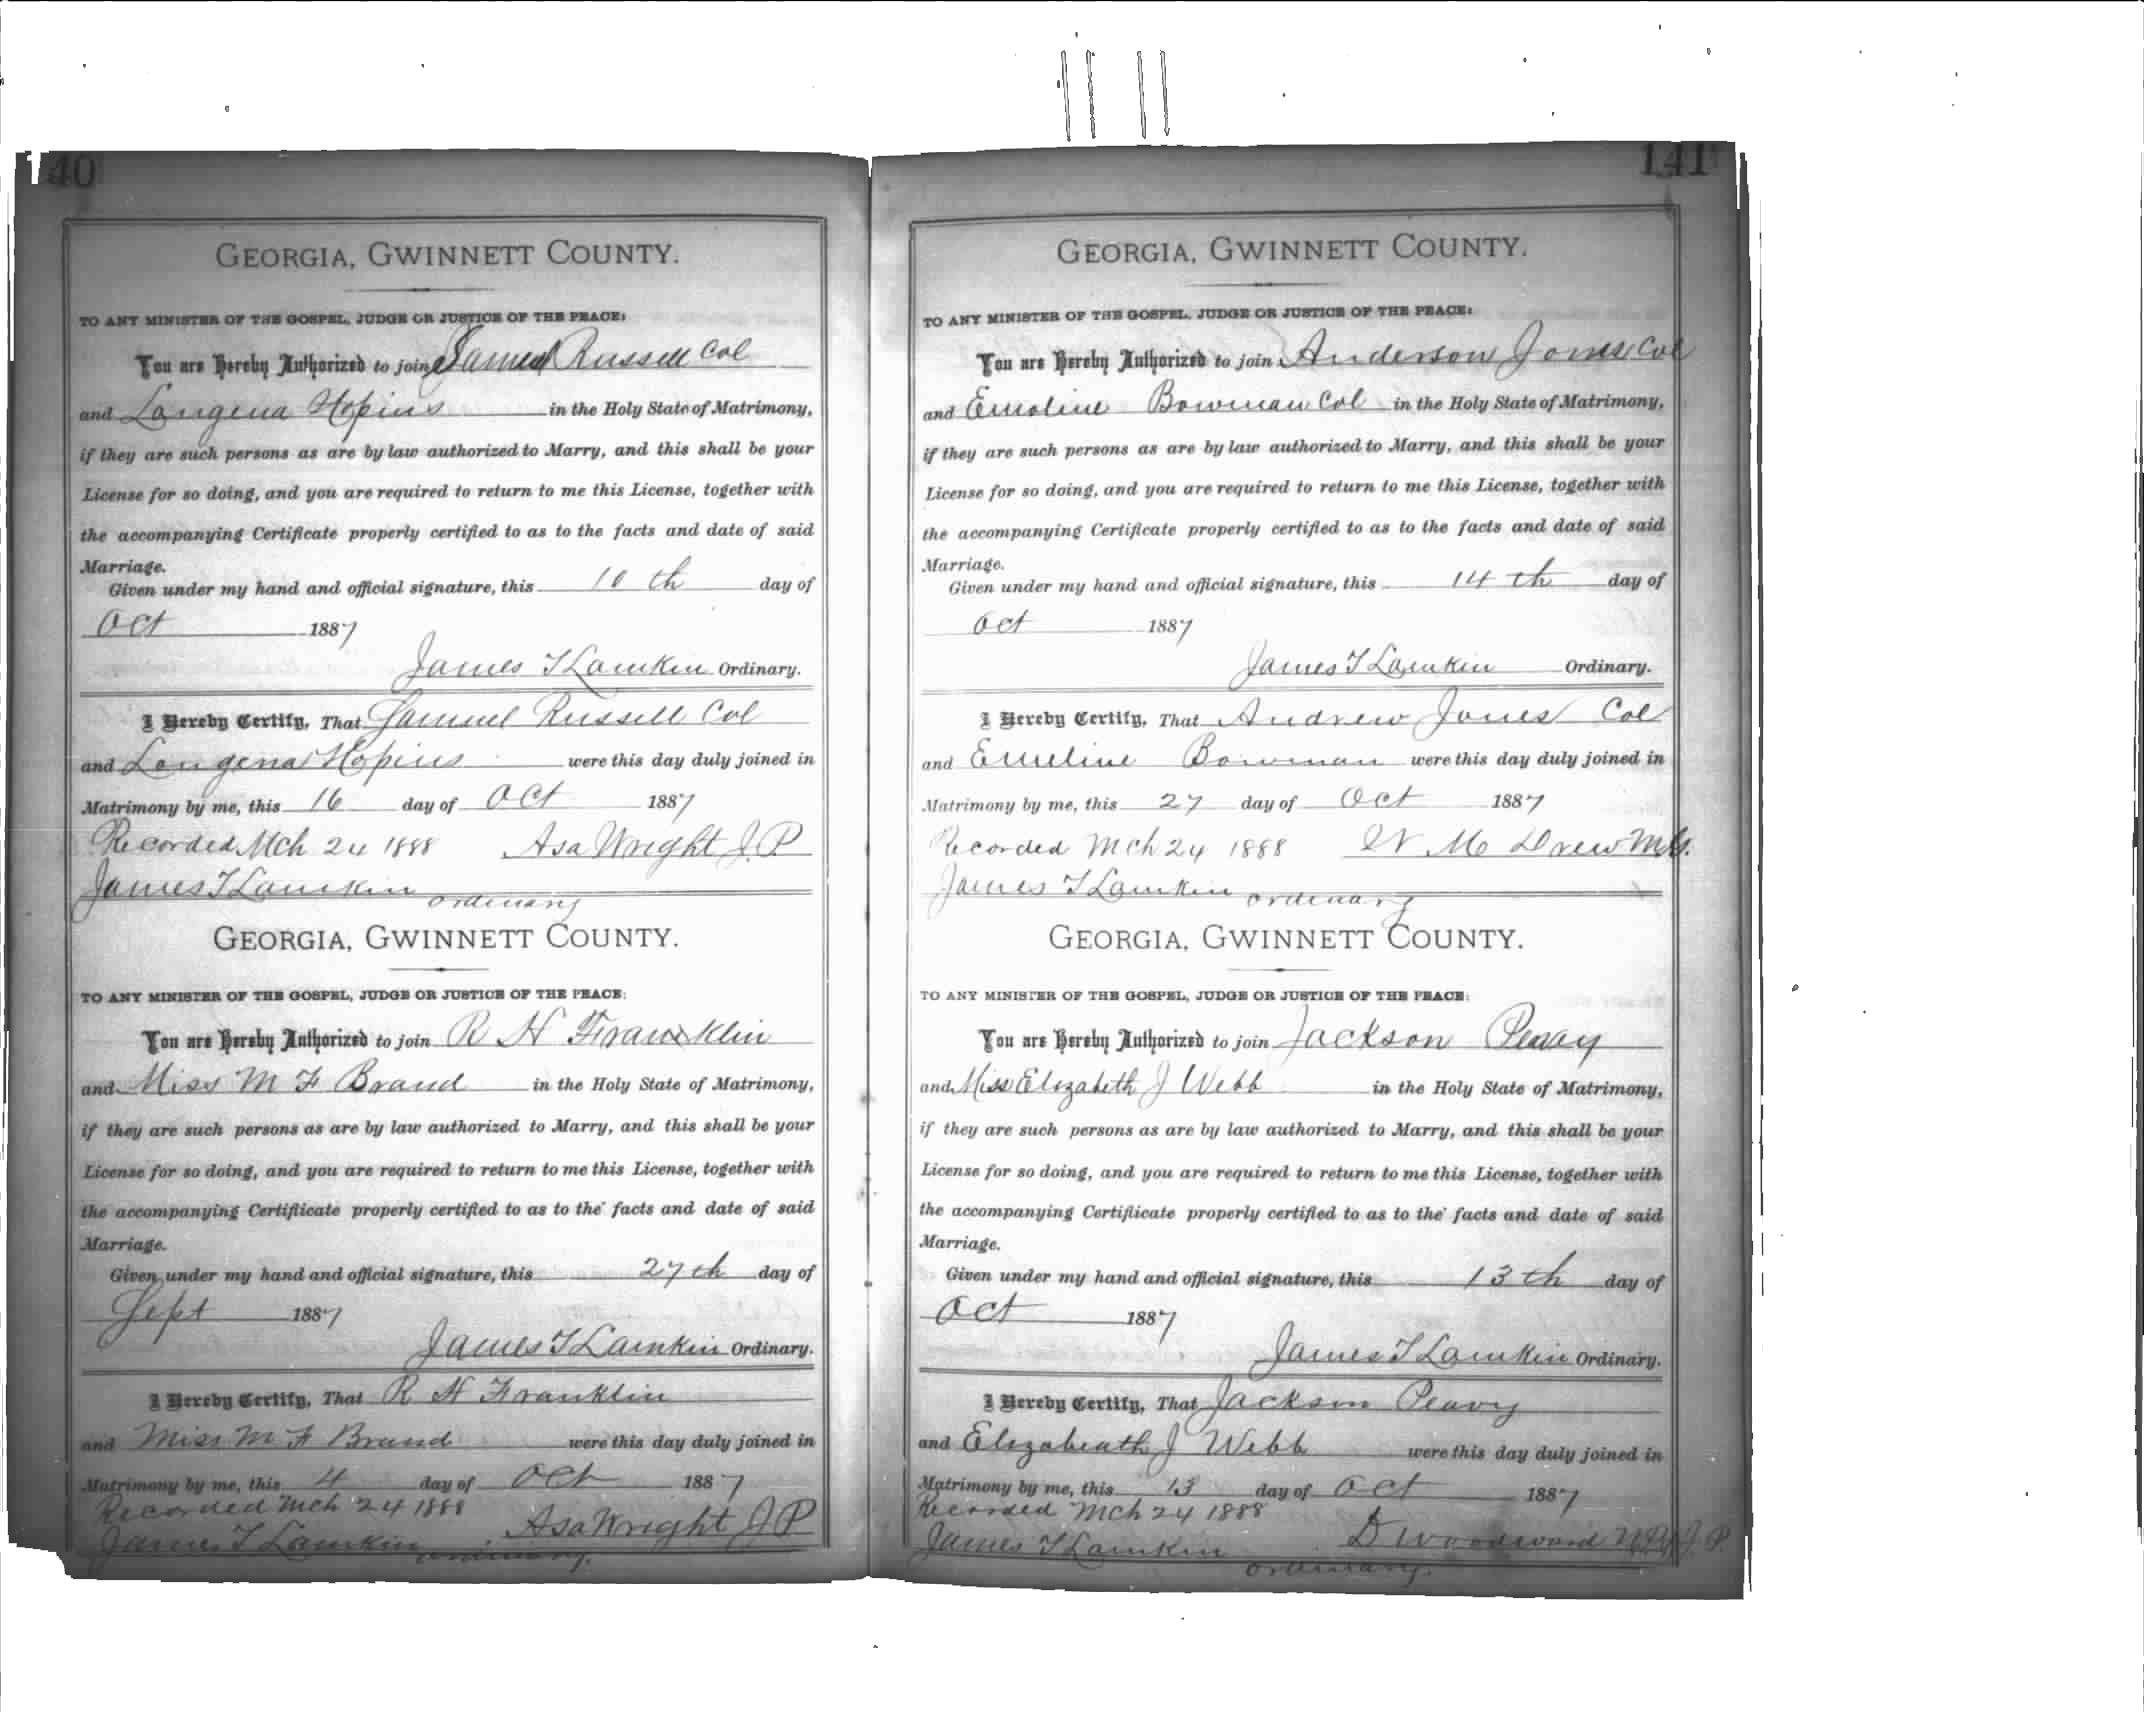 140
GEORGIA, GWINNETT COUNTY.
TO ANY MINISTER OF THE GOSPEL, JUDGE OR JUSTICE OF THE PEACE:
You are Hereby Authorized to join Samuel Russell Col
and Longena Hopins in the Holy State of Matrimony,
if they are such persons as are by law authorized to Marry, and this shall be your
License for so doing, and you are required to return to me this License, together with
the accompanying Certificate properly certified to as to the facts and date of said
Marriage.
Given under my hand and official signature, this 10th day of
Oct 1887
James T Lamkin Ordinary.
I Hereby Certify, That Samuel Russell Col
and Longena Hopins were this day duly joined in
Matrimony by me, this 16 day of Oct 1887
Recorded Mch 24 1888 Asa Wright J.P
James T Lamkin ordinary
GEORGIA, GWINNETT COUNTY.
TO ANY MINISTER OF THE GOSPEL, JUDGE OR JUSTICE OF THE PEACE:
You are Hereby Authorized to join R H Franklin
and Miss M F Brand in the Holy State of Matrimony,
if they are such persons as are by law authorized to Marry, and this shall be your
License for so doing, and you are required to return to me this License, together with
the accompanying Certificate properly certified to as to the facts and date of said
Marriage.
Given under my hand and official signature, this 27th day of
Sept 1887
James T Lamkin Ordinary.
I Hereby Certify, That R H Franklin
and Miss M F Brand were this day duly joined in
Matrimony by me, this 4 day of Oct 1887
Recorded Mch 24 1888
James T Lamkin ordinary. Asa Wright J P
141
GEORGIA, GWINNETT COUNTY.
TO ANY MINISTER OF THE GOSPEL, JUDGE OR JUSTICE OF THE PEACE:
You are Hereby Authorized to join Anderson Jones Col
and Emoline Bowman Col in the Holy State of Matrimony,
if they are such persons as are by law authorized to Marry, and this shall be your
License for so doing, and you are required to return to me this License, together with
the accompanying Certificate properly certified to as to the facts and date of said
Marriage.
Given under my hand and official signature, this 14th day of
Oct 1887
James T Lamkin Ordinary.
I Hereby Certify, That Andrew Jones Col
and Emeline Bowman were this day duly joined in
Matrimony by me, this 27 day of Oct 1887
Recorded Mch 24 1888 W. M. Drew
James T Lamkin ordinary
GEORGIA, GWINNETT COUNTY.
TO ANY MINISTER OF THE GOSPEL, JUDGE OR JUSTICE OF THE PEACE:
You are Hereby Authorized to join Jackson Peavy
and Miss Elizabeth J Webb in the Holy State of Matrimony,
if they are such persons as are by law authorized to Marry, and this shall be your
License for so doing, and you are required to return to me this License, together with
the accompanying Certificate properly certified to as to the facts and date of said
Marriage.
Given under my hand and official signature, this 13th day of
Oct 1887
James T Lamkin Ordinary.
I Hereby Certify, That Jackson Peavy
and Elizabeath J Webb were this day duly joined in
Matrimony by me, this 13 day of Oct 1887
Recorded Mch 24 1888
James T Lamkin ordinary. D Woodward J.P.